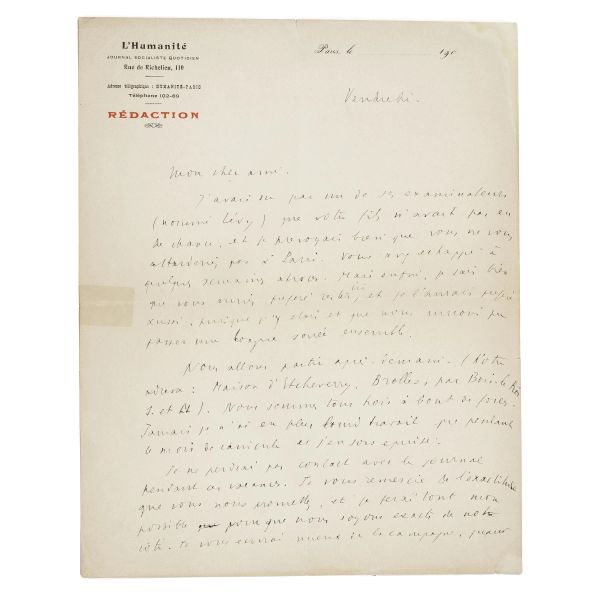 L'Humanité
JOURNAL SOCIALISTE QUOTIDIEN
Rue de Richelieu, 110
Adresse télégraphique : HUMANITÉ-PARIS
Téléphone 102-69
RÉDACTION
Paris, le 190
Vendredi.
Mon cher ami.
J'avais su par un de ses examinateurs
(nommé Lévy) que votre fils n'avait pas eu
de chance, et je prévoyais bien que vous ne vous
attarderiez pas à Paris. Vous avez échappé à
quelques semaines atroces. Mais enfin, je sais bien
que vous auriez préféré rester, et je l'aurais préféré
aussi, puisque j'y étais et que nous aurions pu
passer une longue soirée ensemble.
Nous allons partir après-demain. (Notre
adresse : Maison d'Etcheverry, Brolles, par Bois-le-Roi
S. et M.). Nous sommes tous trois à bout de forces.
Jamais je n'ai eu plus travail que pendant
le mois de canicule et j'en sors épuisé.
Je ne perdrai pas contact avec le journal
pendant ces vacances. Je vous remercie de l'exactitude
que vous nous promettez, et je ferai tout mon
possible pour que nous soyons exacts de notre
côté. Je vous écrirai mieux de la campagne, quand